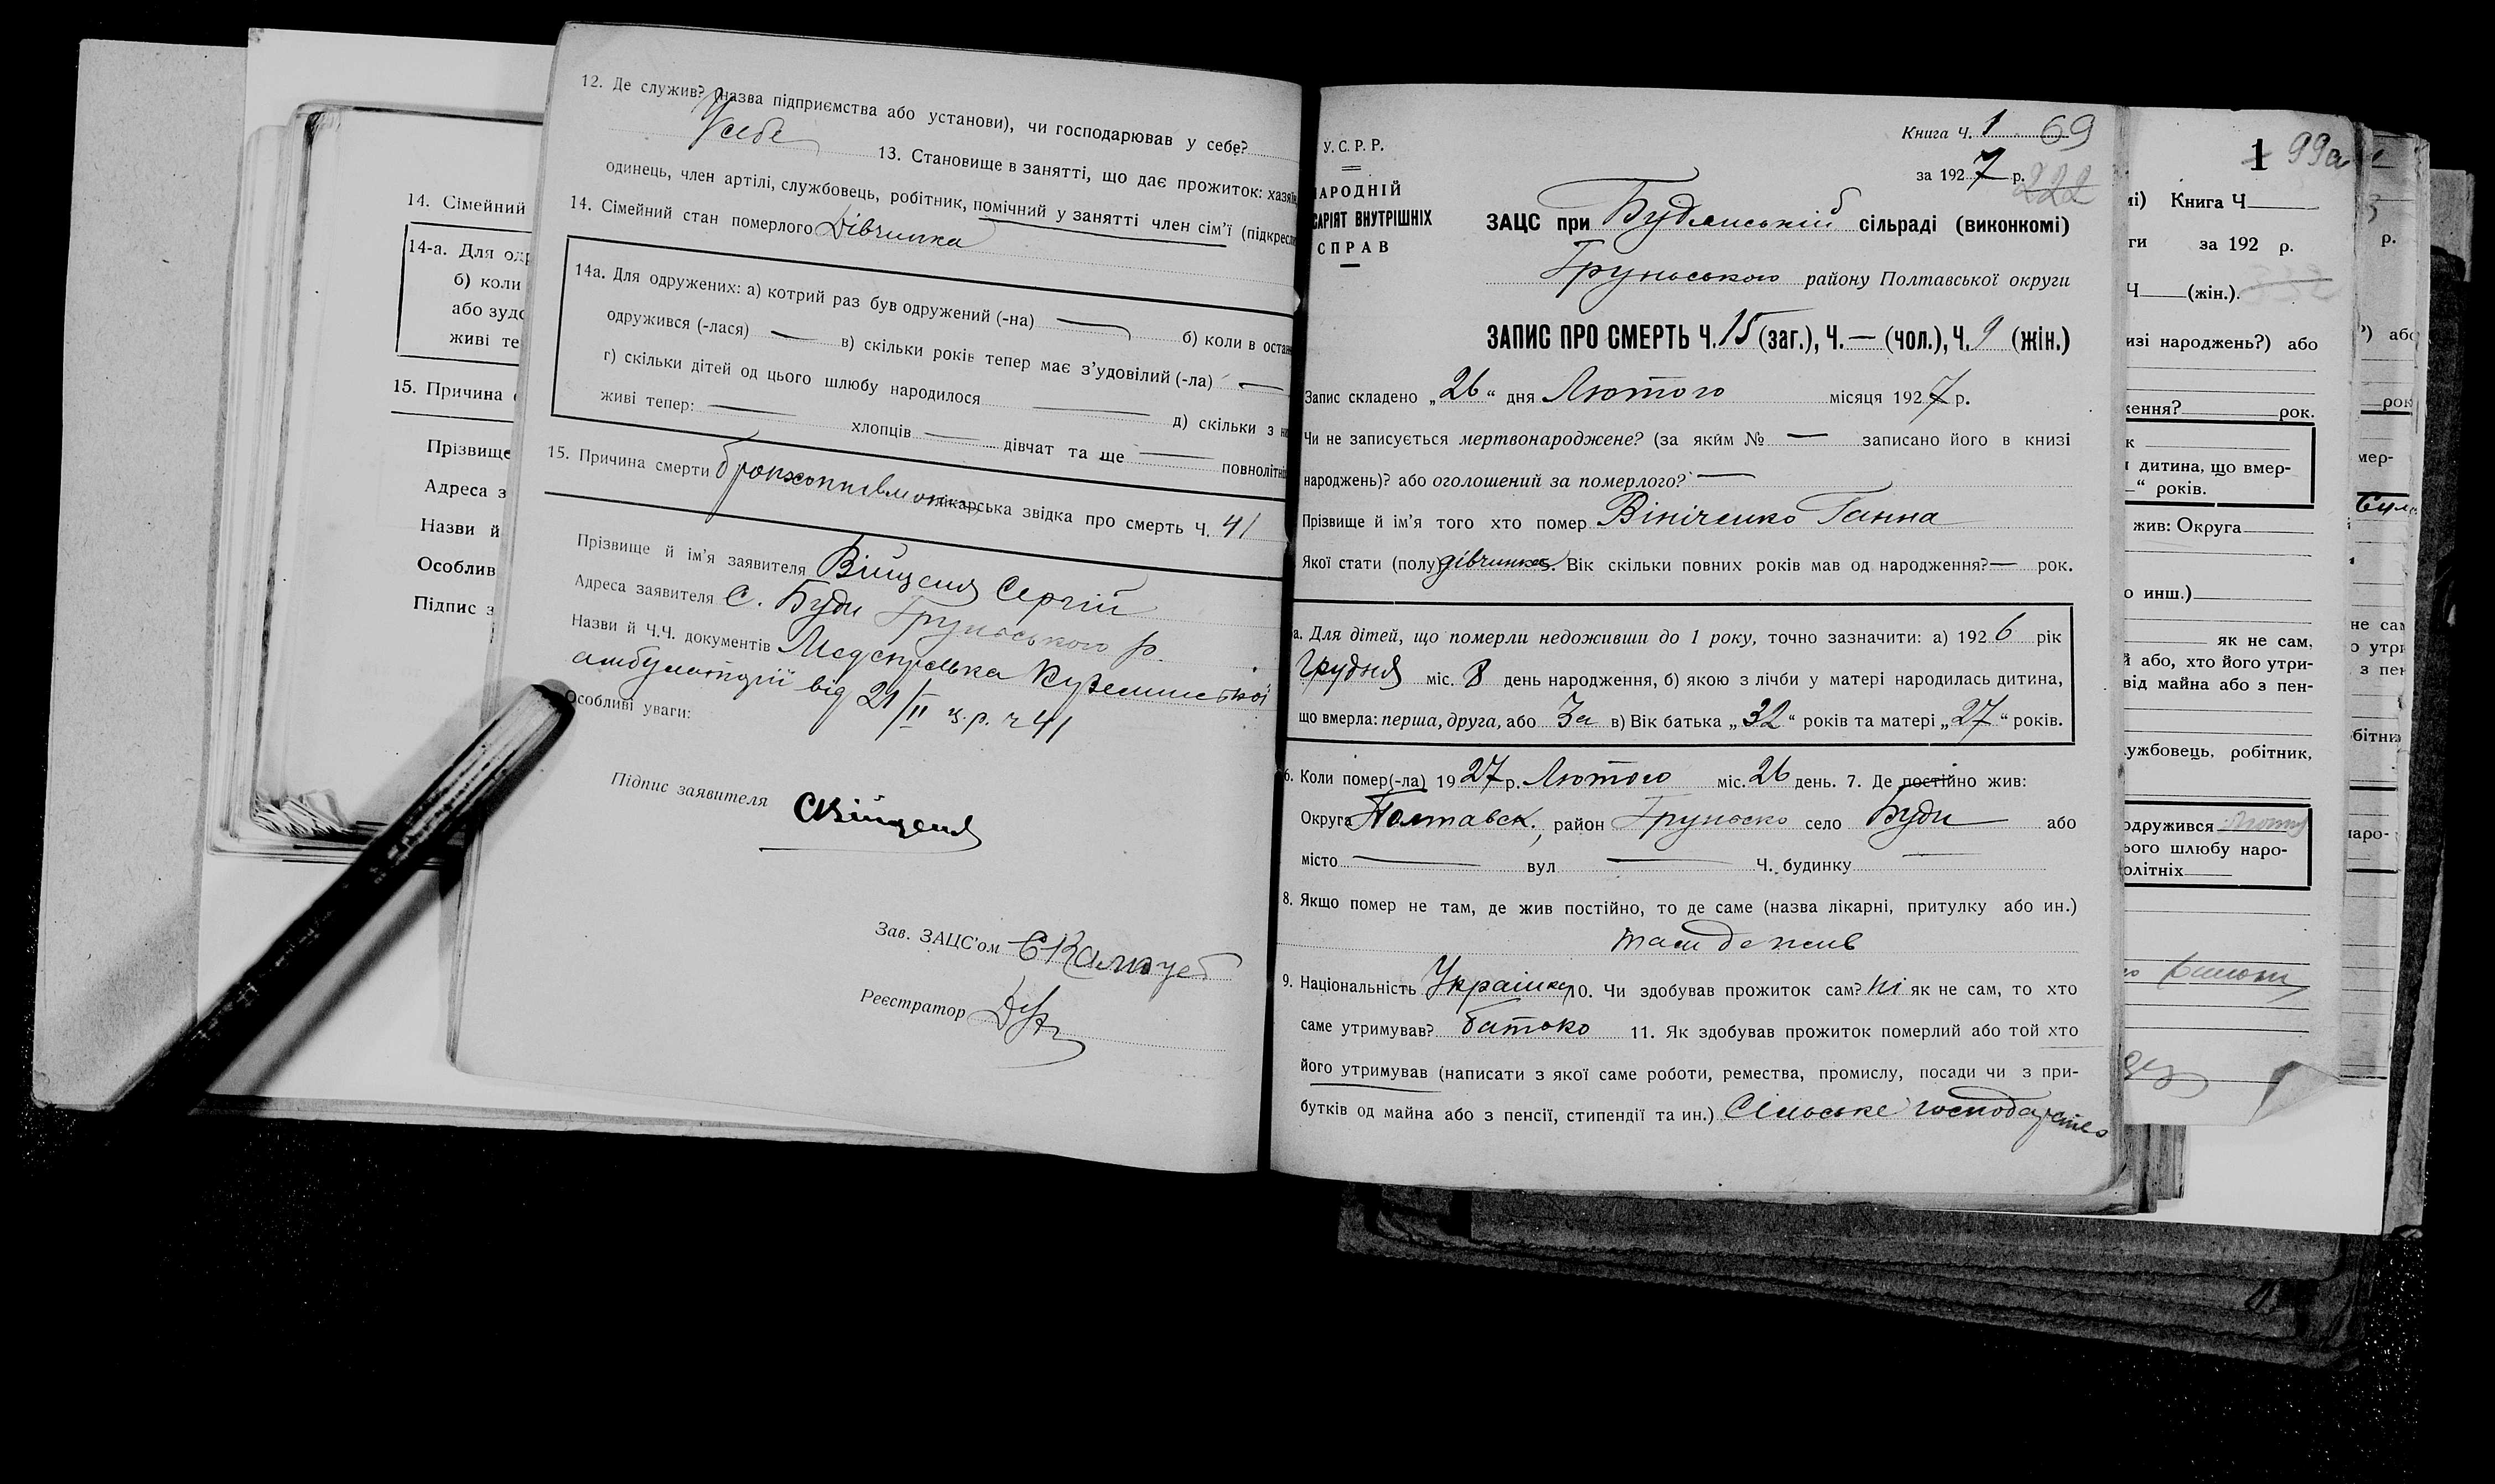 14. Сімейний
14-а. Для
б) коли
або
живі те
15. Причина
Прізвище
Адреса з
Назви й
Особлив
Підпис з
12. Де служив? (назва підприємства або установи), чи господарював у себе?
У себе 13. Становище в занятті, що дає прожиток: хазяїн,
одинець, член артілі, службовець, робітник, помічний у занятті член сім'ї (підкресли
14. Сімейний стан померлого Дівчинка
14а. Для одружених: а) котрий раз був одружений (-на) — б) коли в остан
одружився (-лася) — в) скільки років тепер має з'удовілий (-ла) —
г) скільки дітей од цього шлюбу народилося — д) скільки з них
живі тепер: — хлопців — дівчат та ще — повнолітніх
15. Причина смерти бронхопневмонія лікарська звідка про смерть Ч. 41
Прізвище й ім'я заявителя Сергій
Адреса заявителя С. Буди Груньського р.
Назви й Ч.Ч. документів Медсправка Куземинської
амбулаторії від 21/II ц.р. ч 41
Особливі уваги:
Підпис заявителя
Зав. ЗАЦС'ом
Реєстратор
У.С.Р.Р.
НАРОДНІЙ
САРІЯТ ВНУТРІШНІХ
СПРАВ
Книга Ч. 1 69
за 1927 р. 222
ЗАЦС при Будянській сільраді (виконкомі)
Груньського району Полтавської округи
ЗАПИС ПРО СМЕРТЬ Ч. 15 (заг.), Ч. — (чол.), Ч. 9 (жін.)
Запис складено „26“ дня Лютого місяця 1927 р.
Чи не записується мертвонароджене? (за яким № — записано його в книзі
народжень)? або оголошений за померлого? —
Прізвище й ім'я того хто помер Вініченко Ганна
Якої стати (полу) дівчинка. Вік скільки повних років мав од народження? — рок.
а. Для дітей, що померли недоживши до 1 року, точно зазначити: а) 1926 рік
Грудня міс. 8 день народження, б) якою з лічби у матері народилась дитина,
що вмерла: перша, друга, або 3а в) Вік батька „32“ років та матері „27“ років.
6. Коли помер(-ла) 1927 р. Лютого міс. 26 день. 7. Де постійно жив:
Округа Полтавськ., район Груньско село Буди або
місто — вул — Ч. будинку —
8. Якщо помер не там, де жив постійно, то де саме (назва лікарні, притулку або ин.)
там де жив
9. Національність Українка 10. Чи здобував прожиток сам? ні як не сам, то хто
саме утримував? батько 11. Як здобував прожиток померлий або той хто
його утримував (написати з якої саме роботи, ремества, промислу, посади чи з при-
бутків од майна або з пенсії, стипендії та ин.) Сільське господарство
1 99а
мі) Книга Ч
ги за 192 р.
Ч (жін.).
изі народжень?) або
ження? рок.
к
дитина, що вмер-
“ років.
жив: Округа
о инш.)
як не сам,
й або, хто його утри-
від майна або з пен-
лужбовець, робітник,
одружився
ього шлюбу наро-
олітніх
р.
) або
рок
мер-
не сам
о утри
з пен
обітник
наро-